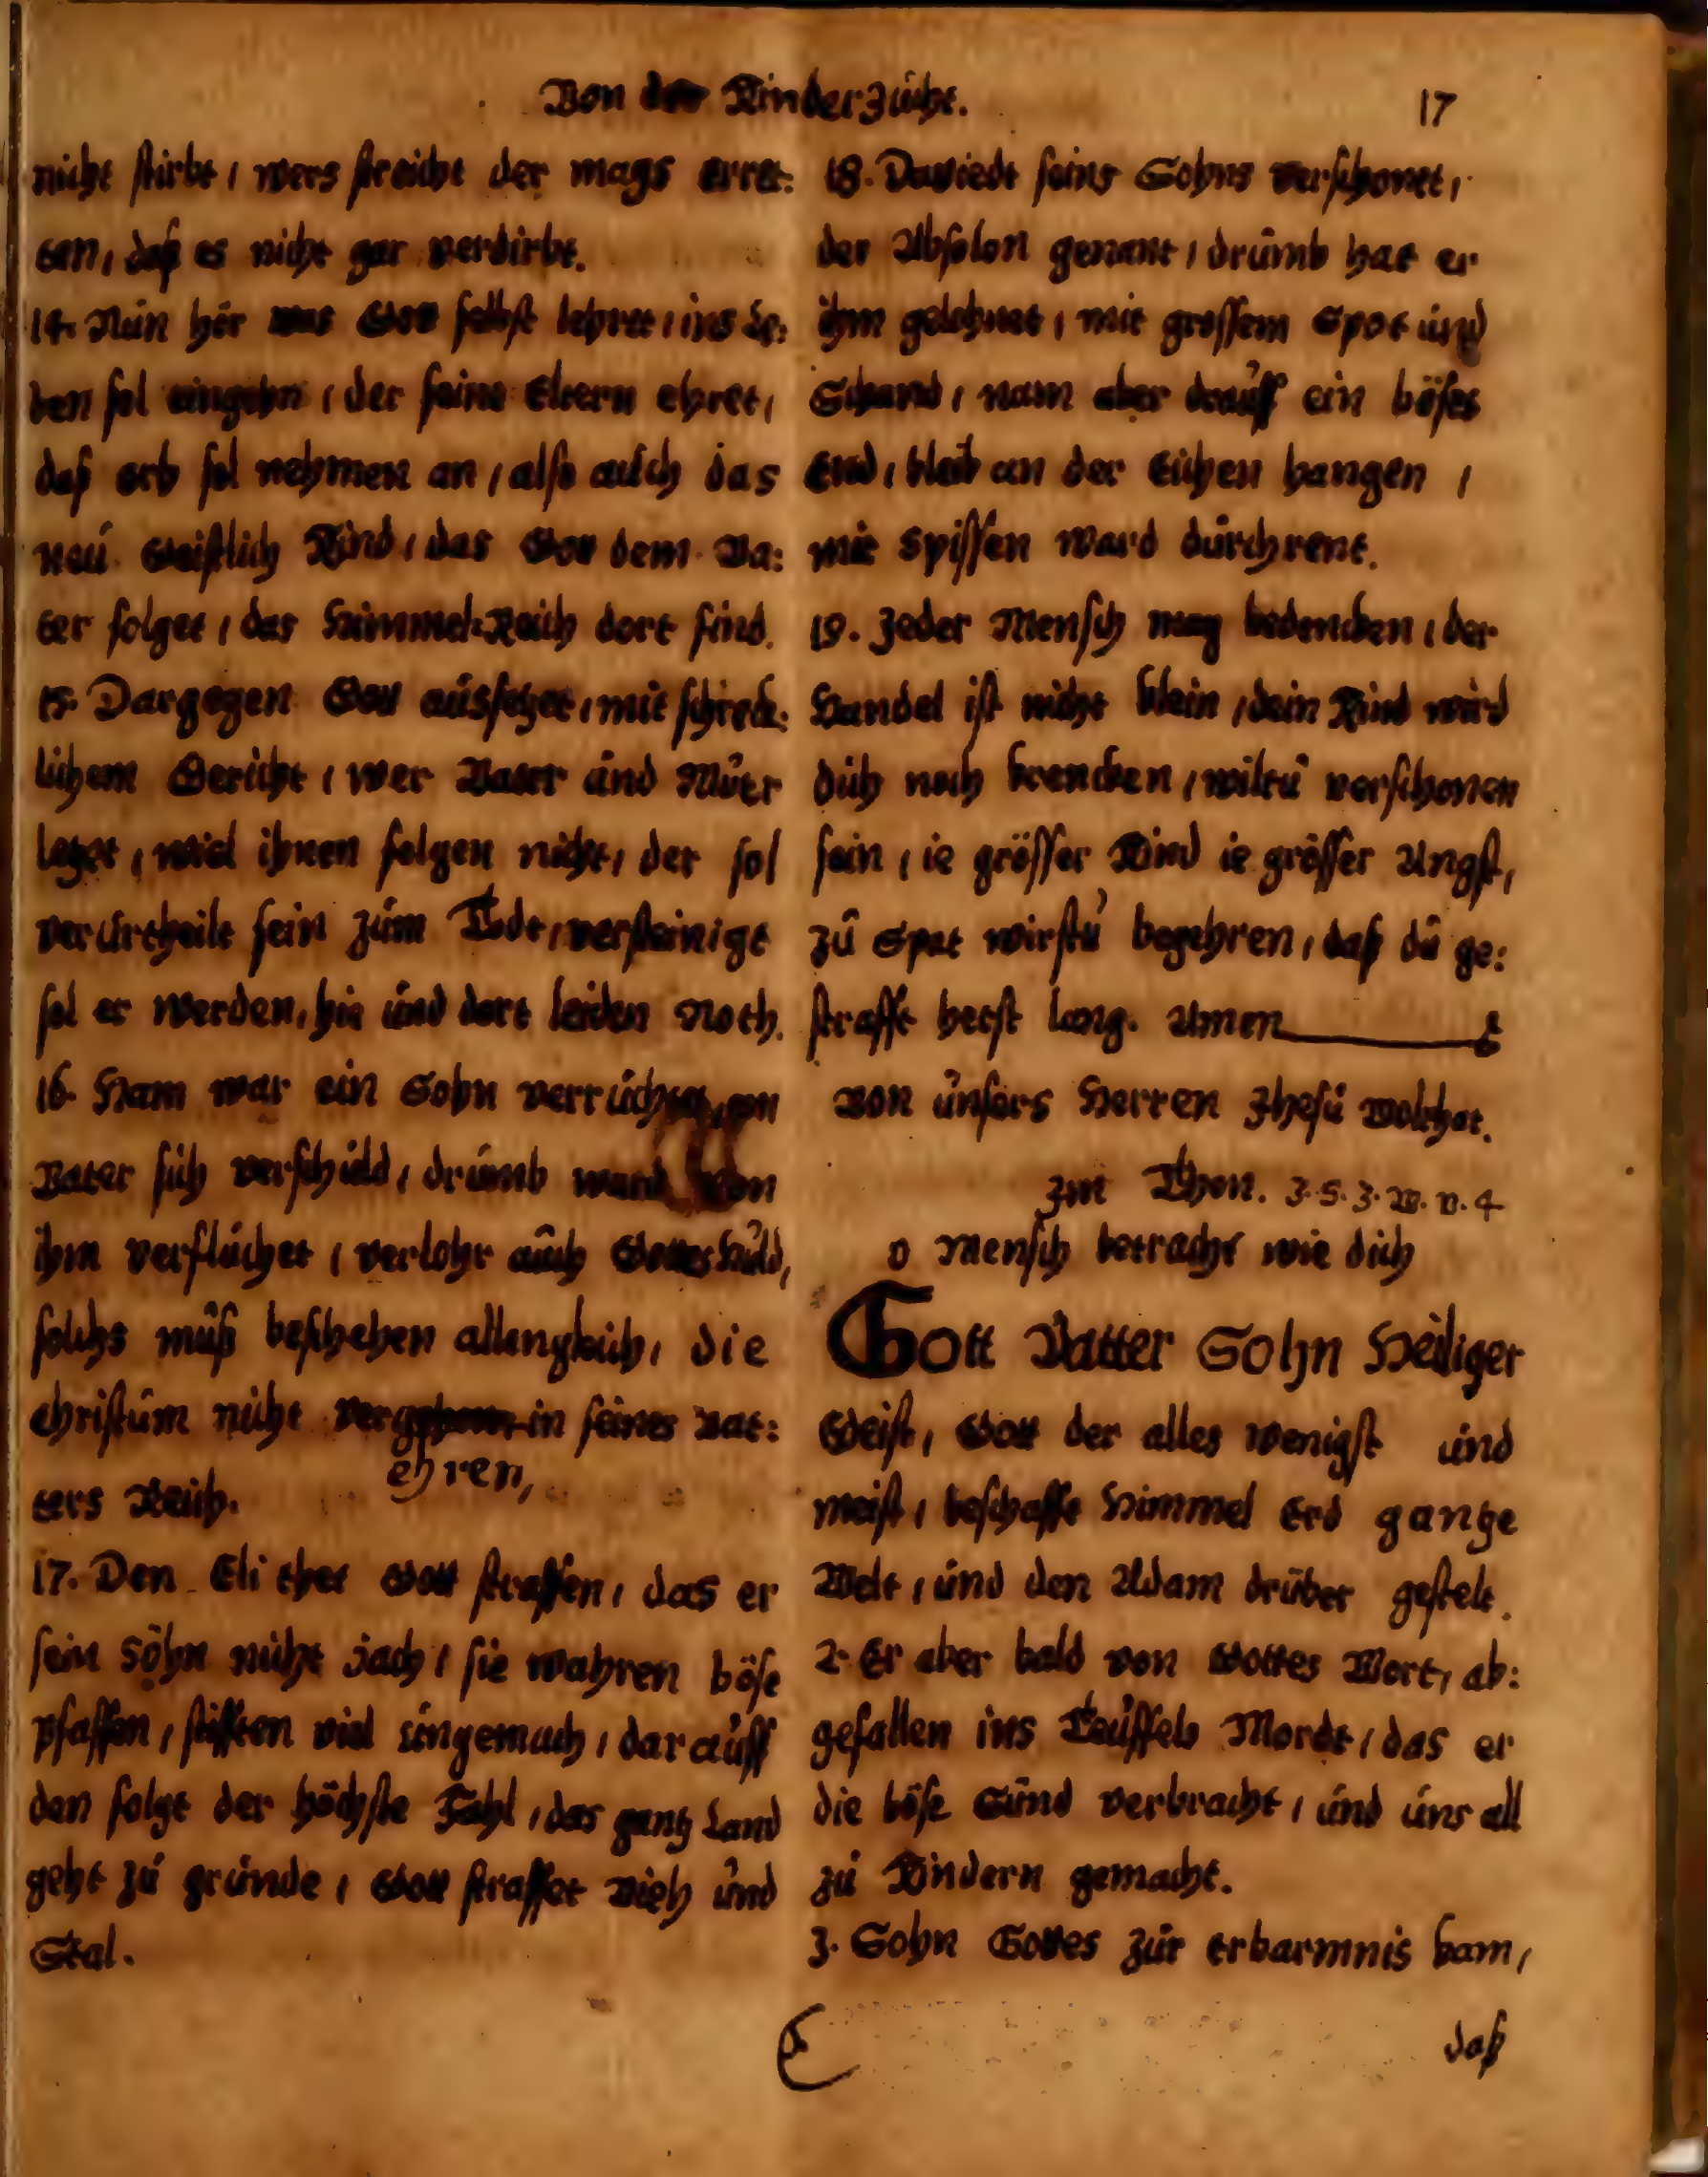 Von der Kinderzucht.
17
nicht stirbt / wers streicht der mags erret:
ten, daß es nicht gar verdirbt.
14. Nún hör was Gott selbst lehret / ins Le:
ben sol eingehn / der seine Eltern ehret,
daß erb sol nehmen an / also aúch das
neú Geistlich Kind / das Gott dem Va:
ter folget / das Himmel-Reich dort find.
15. Dargegen Gott aússetzet, mit schreck:
lichem Gericht / wer Vater únd Múter
letzet, wiel ihnen folgen nicht, der sol
verúrtheilt sein zúm Todt, versteinigt
sol er werden, hie únd dort leiden Noth.
16. Ham war ein Sohn verrúchtet, am
Vater sich verschúld, drúmb ward von
ihm verflúchet / verlohr aúch Gottes Húld,
solchs múß beschehen allengleich, die
Christúm nicht ver ehren, in seines Vat:
ters Reich.
17. Den Eli thet Gott straffen, das er
sein Söhn nicht zach / sie wahren böse
Pfaffen / stifften viel úngemach / daraúff
den folgt der höchste Fahl / das gantz Land
geht zú grúnde / Gott straffet Vieh únd
Stal.
18. Daviedt seins Sohns verschonet,
der Absolon genant / drúmb hat er
ihm gelohnet / mit grossem Spot únd
Schand / nam aber draúff ein böses
End, bleib an der Eichen hangen /
mit Spissen ward dúrchrent.
19. Jeder Mensch mag bedencken / der
Handel ist nicht klein / dein Kind wird
dich noch krencken / wiltú verschonen
sein / ie grösser Kind ie grösser Angst,
zú Spat wirstú begehren, daß dú ge:
strafft hetst lang. Amen
Von únsers Herren Jhesú Wolthat.
Im Thon. J. S. J. W. v. 4
O Mensch betracht wie dich
Gott Vatter Sohn Heiliger
Geist, Gott der alles wenigst únd
meist, beschafft Himmel Erd gantze
Welt, únd den Adam drúber gestelt.
2. Er aber bald von Gottes Wort, ab:
gefallen ins Teúffels Mordt / das er
die böse Súnd verbracht, únd úns all
zú Kindern gemacht.
3. Sohn Gottes zúr erbarmnis kam,
C
daß